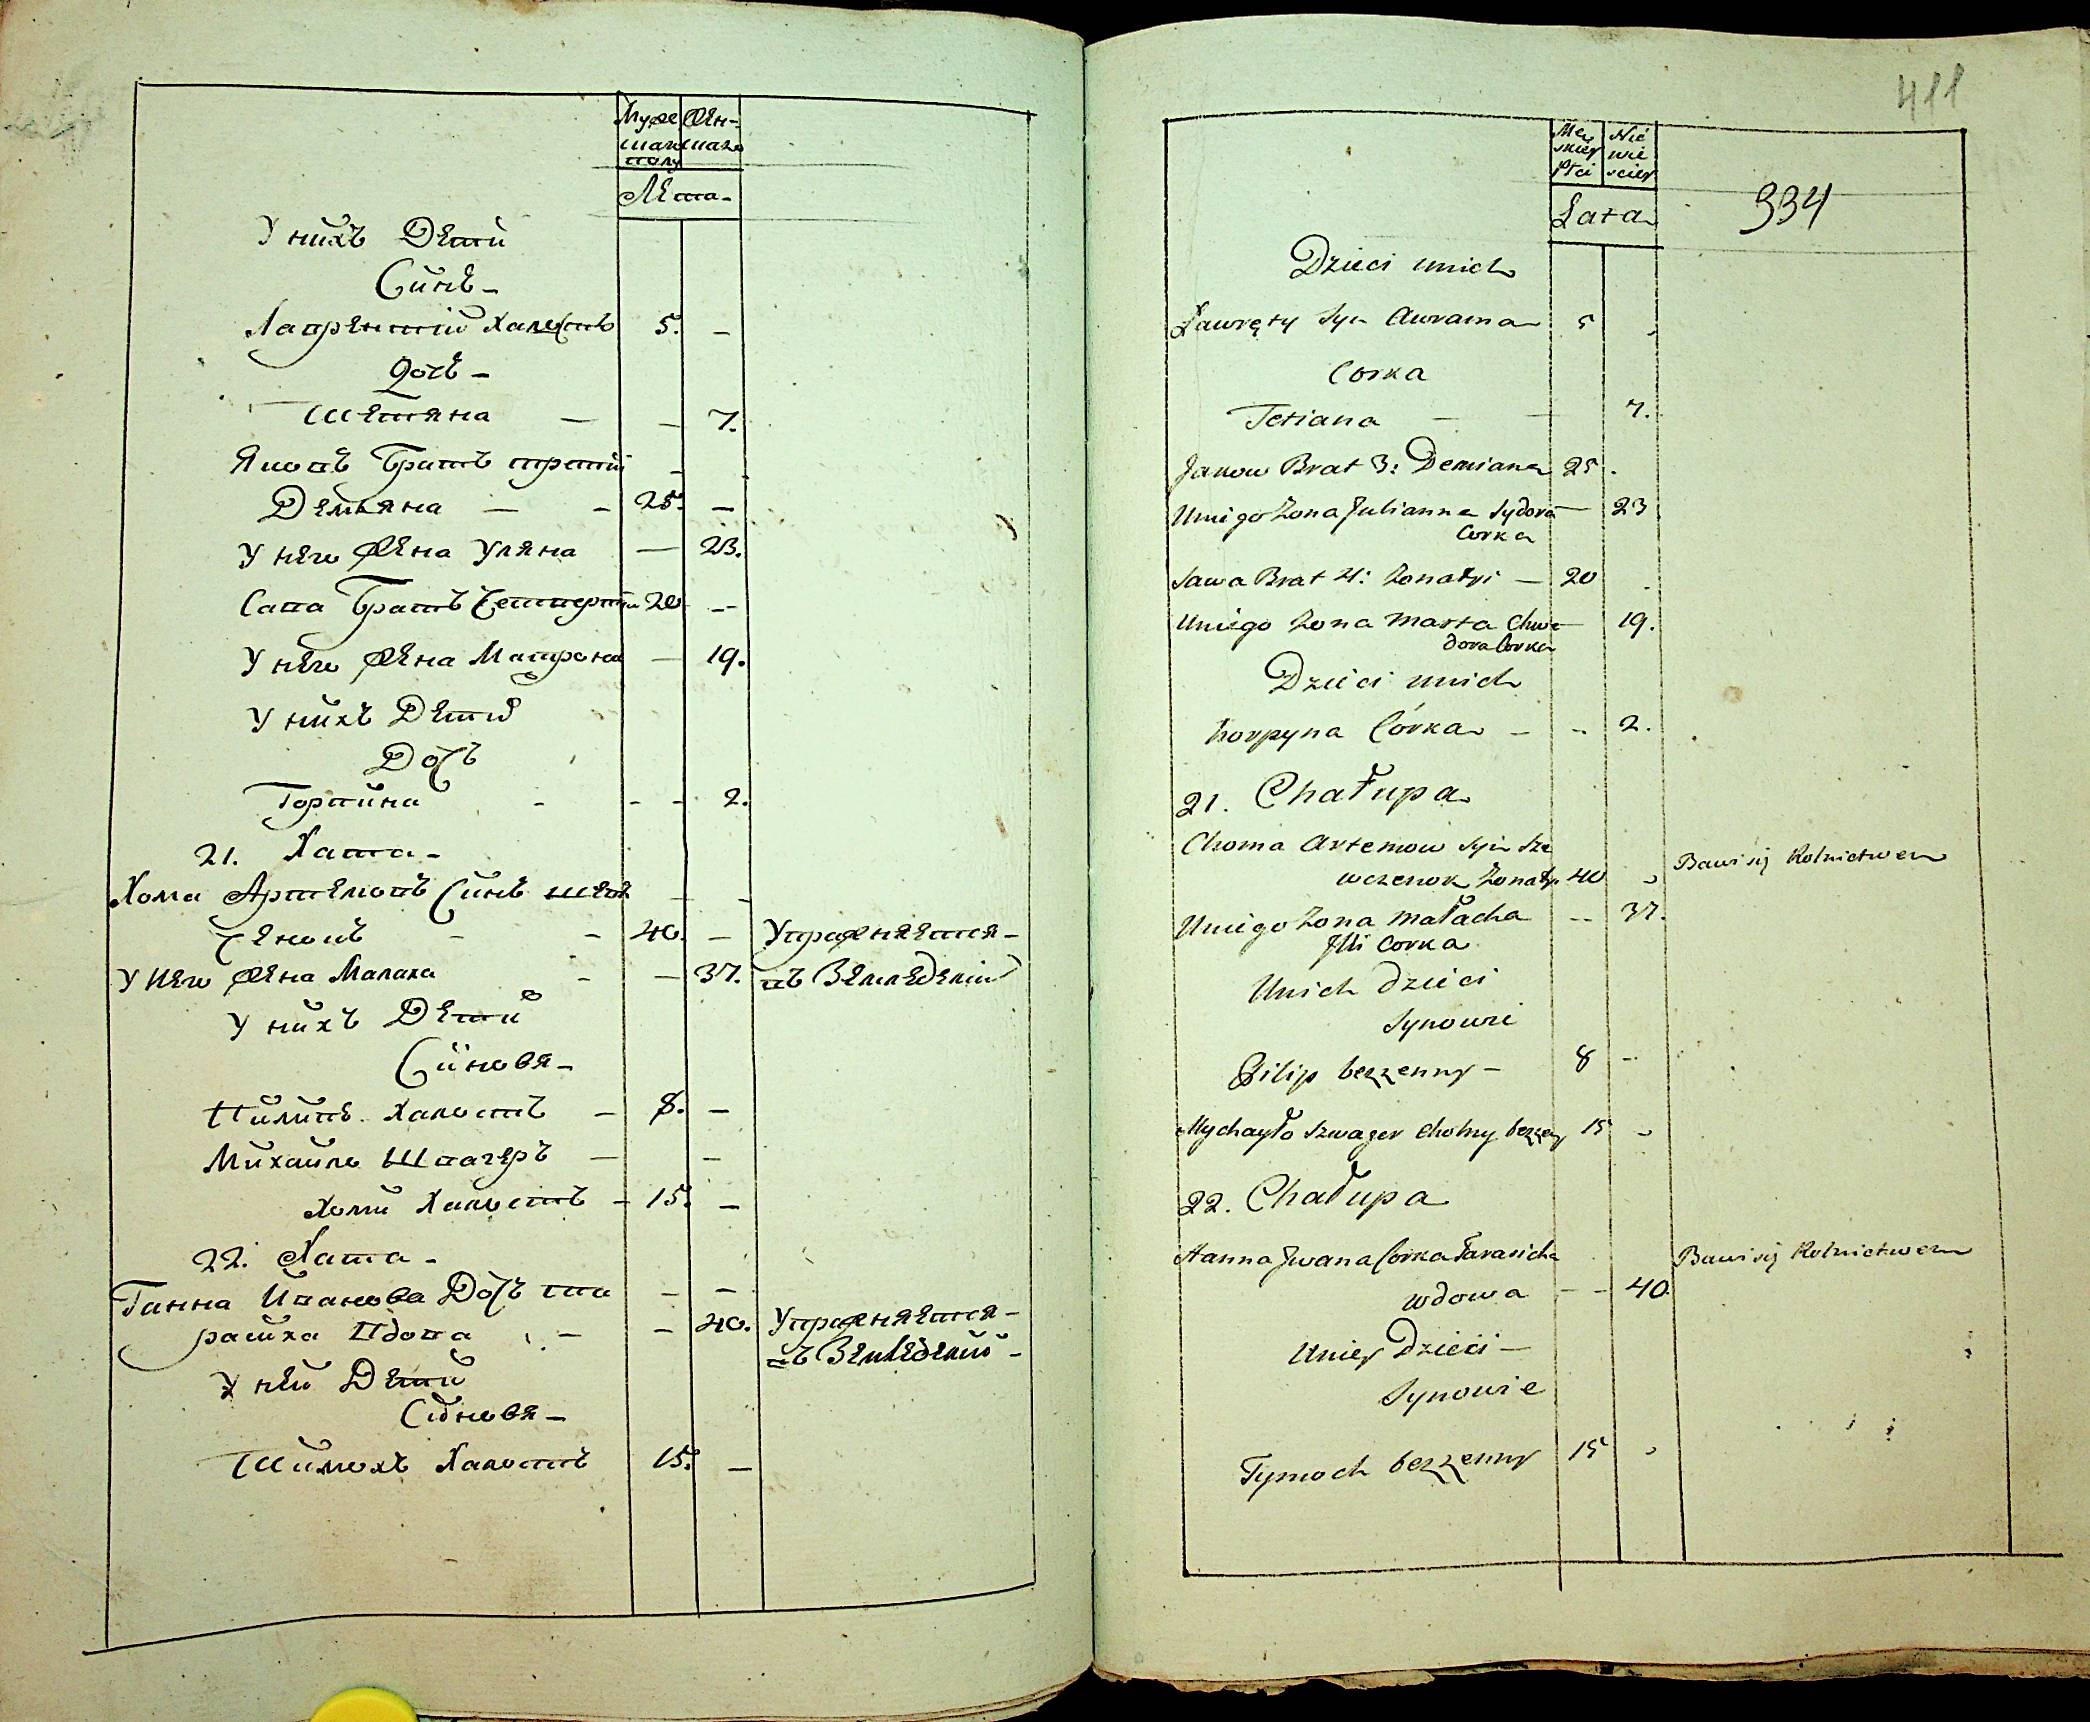 Муже
скаго
полу
Жен-
скаго
Лета-
У нихъ Дети
Синъ-
Лаврентий Халостъ 5. -
Дочь -
Тетяна - - 7.
Яковъ Братъ третий -
Демьяна - - 25. -
У него Жена Уляна - 23.
Сава Братъ Четверти 20 --
У него Жена Матрона - 19.
У нихъ Дети
Дочъ
Горпина - - - 2.
21. Хата-
Хома Артемовъ Синъ Шев - -
ченокъ - - 40. - Упражняется-
У него Жена Малаха - - 37. въ Земледелии
У нихъ Дети
Синовя-
Пилипъ Халостъ - 8. -
Михайло Швагеръ - -
Хоми Халостъ - 15. -
22. Хата-
Ганна Иванова Дочъ Та - -
расиха Вдова - - 40. Упражняется-
въ Земледелии -
У ней Дети
Синовя-
Тимохъ Халостъ 15. -
411
Męz
skiey
Płci
Nie
wie
sciey
Łata
334
Dzieci unich
Ławręty Syn Awrama 5 -
Corka
Tetiana - - 7.
Jakow Brat 3: Demiana 25 .
Uniego Zona Julianna Sydora - 23
Corka
Sawa Brat 4: Zonaty - 20 -
Uniego Zona Marta Chwe- 19.
dora Corka
Dzieci unich
Horpyna Córka - - 2.
21. Chałupa
Choma Artemow Syn Sze
wczenok Zonaty 40 - Bawi się Rolnictwem
Uniego Zona Małacha -- 37.
Illi Corka
Unich Dzieci
Synowie
Filip bezzenny - 8 -
Mychayło Szwager Chomy bezzeny 15 -
22. Chałupa
Hanna Jwana Corka Tarasicha Bawi się Rolnictwem
wdowa - - 40.
Uniey Dzieci -
Synowie
Tymoch bezzenny 15 -